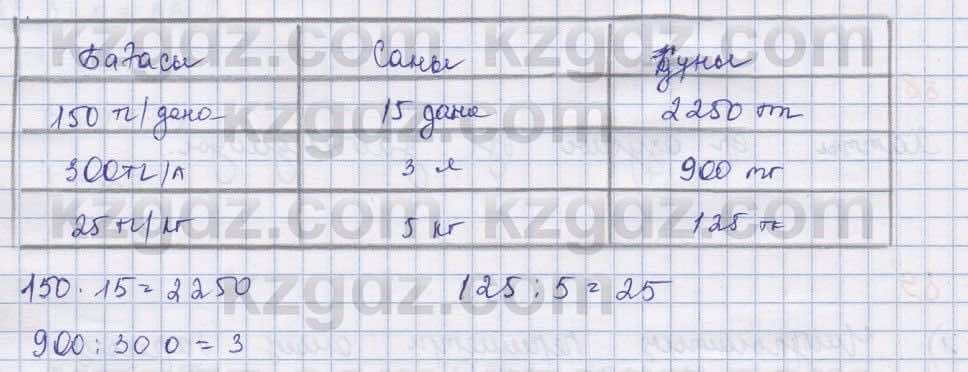 Бағасы Саны Құны
150 тг/дана 15 дана 2250 тг
300тг/л 3 л 900 тг
25 тг/кг 5 кг 125 тг
150 · 15 = 2250 125 : 5 = 25
900 : 300 = 3
kzgdz.com